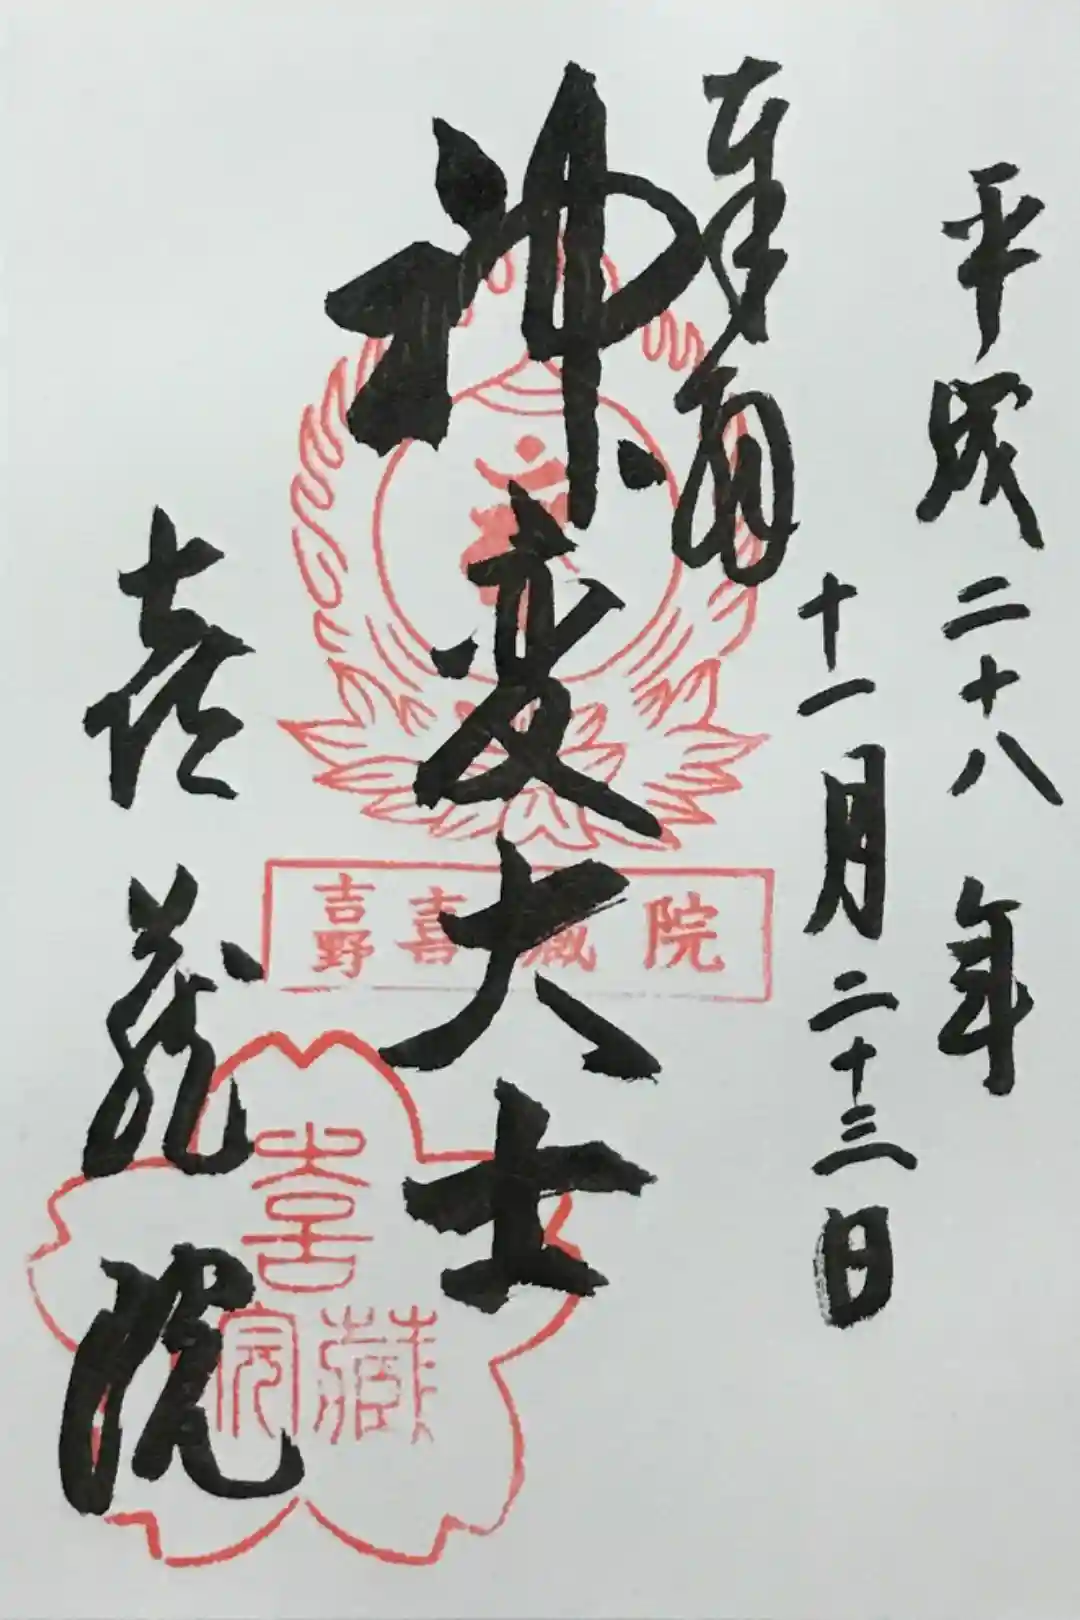 平成二十八年
十一月二十三日
奉拝
神変大士
喜蔵院
吉野喜蔵院
喜蔵院